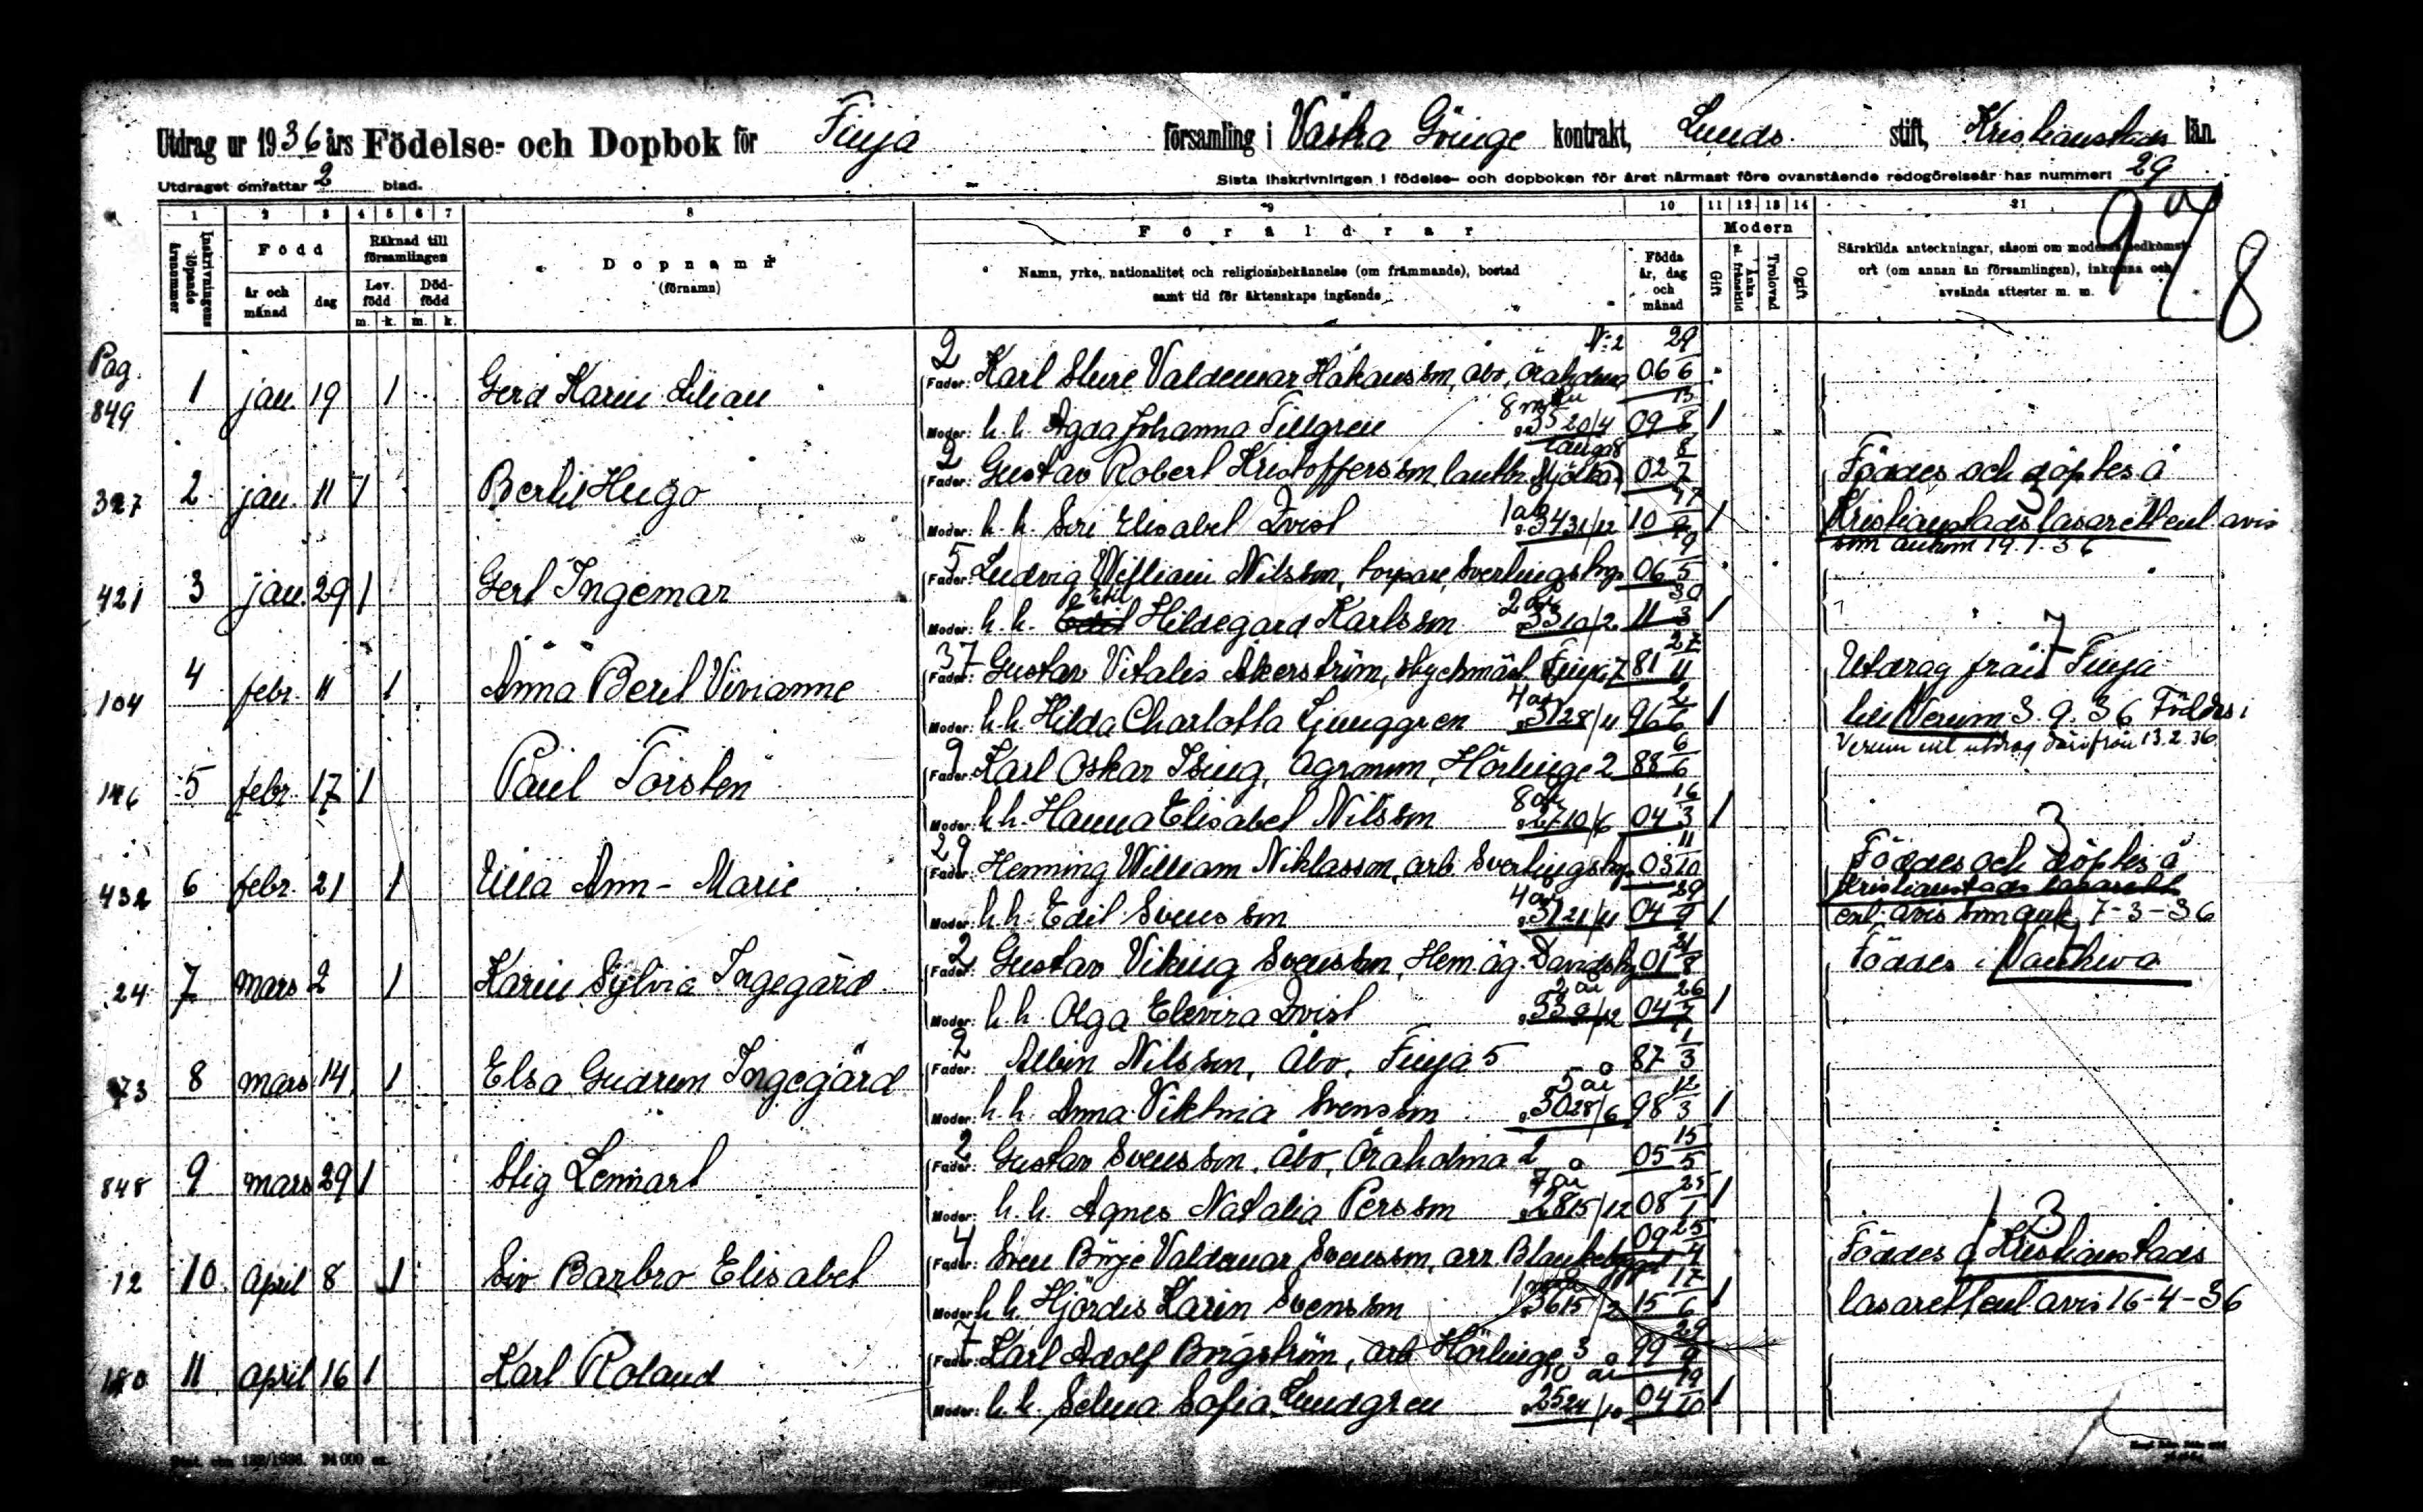 Utdrag ur 1936 års Födelse- och Dopbok för Finja församling i Västra Göinge kontrakt, Lunds stift, Kristianstads län.
Utdraget omfattar 2 blad.
Sista inskrivningen i födelse- och dopboken för året närmast före ovanstående redogörelseår har nummer: 29
1 2 3 4 5 6 7 8 9 10 11 12 13 14 21
Inskrivningens löpande årsnummer
Född
år och månad
dag
Räknad till församlingen
Lev. född
Död-född
m. k. m. k.
Dopnamn
(förnamn)
Föräldrar
Namn, yrke, nationalitet och religionsbekännelse (om främmande), bostad
samt tid för äktenskaps ingående
Födda år, dag och månad
Modern
Gift
Änka l. frånskild
Trolovad
Ogift
Särskilda anteckningar, såsom om moderns nedkomst-
ort (om annan än församlingen), inkomna och
avsända attester m. m.
8
Pag.
849 1 jan. 19 1 Gerd Karin Lilian
2
Fader: Karl Sture Valdemar Håkansson, åbo, Öraholma N:2 06 29/6
Moder: h. h. Agda Johanna Tillgren 8 mån 35 20/4 09 13/8 1
327 2 jan. 11 1 Bertil Hugo
2
Fader: Gustav Robert Kristoffersson, lantbr. 02 8/7
Moder: h. h. Siri Elisabet Qvist 1 år 34 31/12 10 1
Föddes och döptes å
Kristianstads lasarett enl. avis
som ankom 19.1.36
421 3 jan. 29 1 Gert Ingemar
5
Fader: Ludvig William Nilsson, torpare, Sverlingshg. 06 9/5
Moder: h. h. Hildegard Karlsson 2 år 33 10/2 11 30/3 1
104 4 febr. 11 1 Anna Beril Vivianne
37
Fader: Gustav Vitalis Åkerström, styckmäst. Finja 7 81 27/11
Moder: h. h. Hilda Charlotta Ljunggren 4 år 31 28/11 96 2/6 1
7
Utdrag från Finja
till Verum 3.9.36 Föddes i
Verum enl utdrag därifrån 13.2.36
146 5 febr. 17 1 Paul Torsten
9
Fader: Karl Oskar Ising, Agronom, Hörlinge 2 88 6/6
Moder: h. h. Hanna Elisabet Nilsson 8 år 27 10/6 04 16/3 1
432 6 febr. 21 1 Ulla Ann-Marie
29
Fader: Henning William Niklasson, arb. Sverlingshg. 03 11/10
Moder: h. h. Edit Svensson 4 år 31 21/11 04 29/9 1
3
Föddes och döptes å
Kristianstads lasarett
enl. avis som ank. 7-3-36
24 7 mars 2 1 Karin Sylvia Ingegärd
2
Fader: Gustav Viking Svensson, Hem.äg. Davidshg 01 31/8
Moder: h. h. Olga Elevira Qvist 2 år 33 9/12 04 26/7 1
Föddes i Vankiva
73 8 mars 14 1 Elsa Gudrun Ingegärd
2
Fader: Albin Nilsson, Åbo, Finja 5 87 1/3
Moder: h. h. Anna Viktoria Svensson 5 år 30 28/6 98 12/3 1
848 9 mars 29 1 Stig Lennart
2
Fader: Gustav Svensson, Åbo, Öraholma 2 05 15/5
Moder: h. h. Agnes Natalia Persson 7 år 28 15/12 08 25/1 1
12 10 april 8 1 Siv Barbro Elisabet
4
Fader: Sven Börje Valdemar Svensson, arr. 09 25/4
Moder: h. h. Hjördis Karin Svensson 36 15/2 15 17/6 1
3
Föddes å Kristianstads
lasarett enl avis 16-4-36
180 11 april 16 1 Karl Roland
7
Fader: Karl Adolf Borgström, arb Hörlinge 3 99 29/9
Moder: h. h. Selma Sofia Lundgren 10 år 25 24/10 04 19/10 1